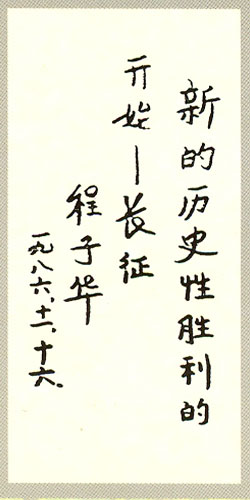 新的历史性胜利的
开始—长征
程子华
一九八六、十一、十六、